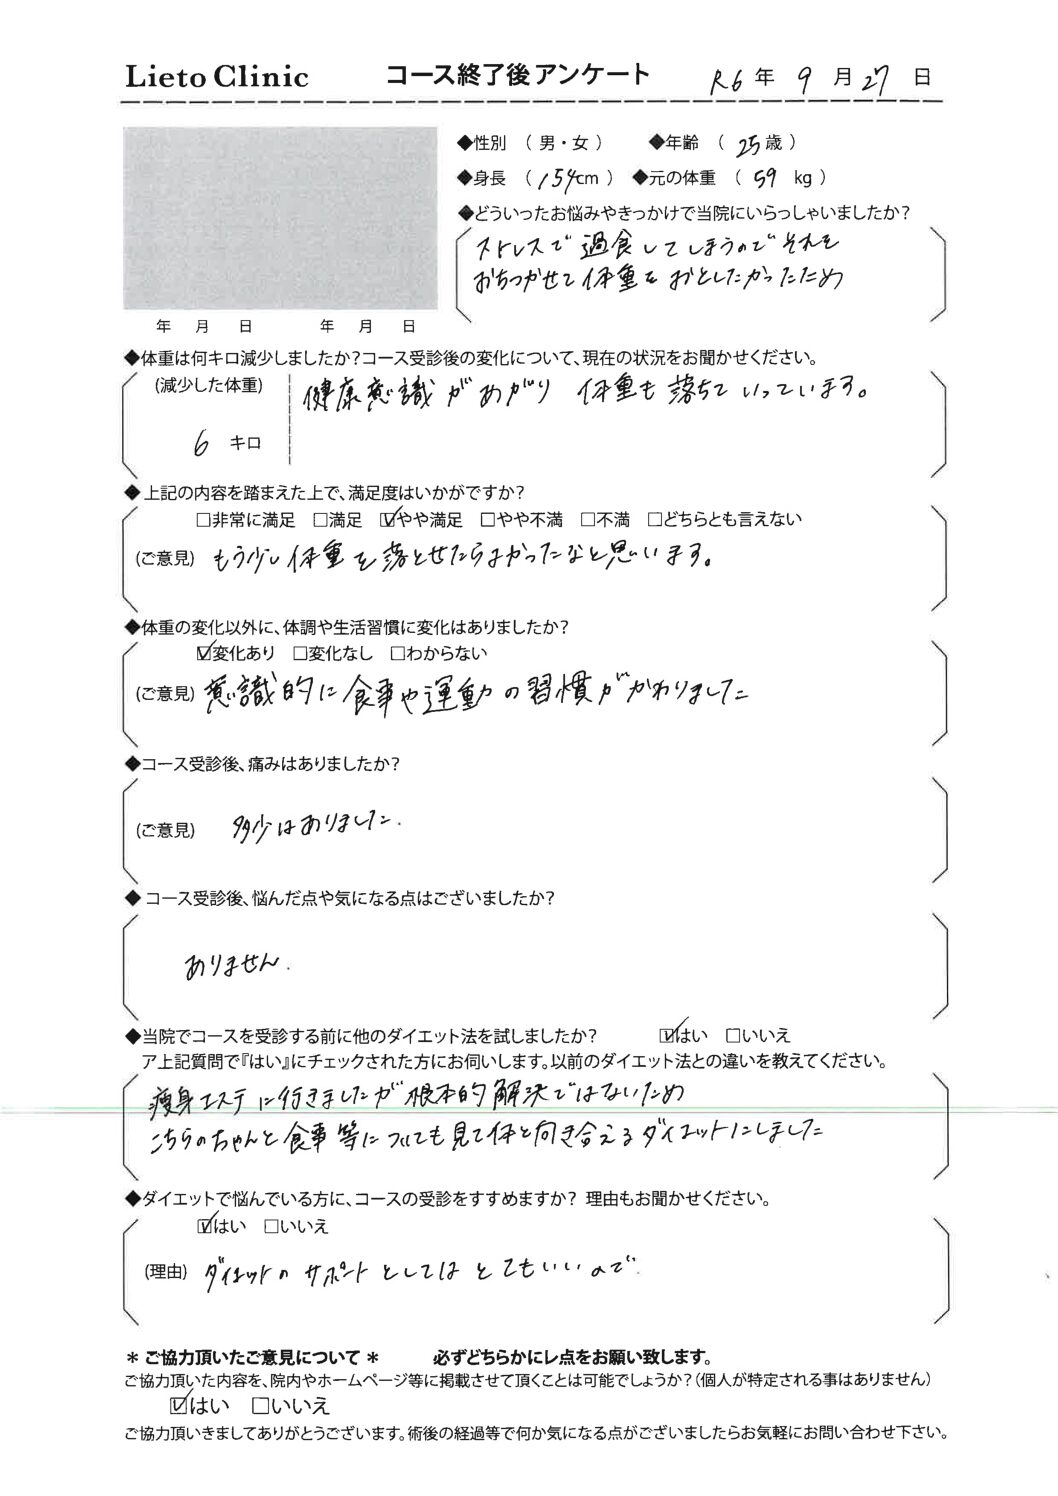 Lieto Clinic コース終了後アンケート R6年 9月 27日
◆性別 （ 男・女 ） ◆年齢 （ 25歳 ）
◆身長 （ 154cm ） ◆元の体重 （ 59 kg ）
◆どういったお悩みやきっかけで当院にいらっしゃいましたか？
ストレスで過食してしまうのでそれを
おちつかせて体重をおとしたかったため
年 月 日 年 月 日
◆体重は何キロ減少しましたか？コース受診後の変化について、現在の状況をお聞かせください。
(減少した体重) 健康意識があがり 体重も落ちていっています。
6 キロ
◆ 上記の内容を踏まえた上で、満足度はいかがですか？
□非常に満足 □満足 ☑やや満足 □やや不満 □不満 □どちらとも言えない
(ご意見) もう少し体重を落とせたらよかったなと思います。
◆体重の変化以外に、体調や生活習慣に変化はありましたか？
☑変化あり □変化なし □わからない
(ご意見) 意識的に食事や運動の習慣がかわりました
◆コース受診後、痛みはありましたか？
(ご意見) 多少はありました.
◆ コース受診後、悩んだ点や気になる点はございましたか？
ありません.
◆当院でコースを受診する前に他のダイエット法を試しましたか？ ☑はい □いいえ
ア上記質問で『はい』にチェックされた方にお伺いします。以前のダイエット法との違いを教えてください。
痩身エステに行きましたが根本的解決ではないため
こちらのちゃんと食事等についても見て体と向き合えるダイエットにしました
◆ダイエットで悩んでいる方に、コースの受診をすすめますか？ 理由もお聞かせください。
☑はい □いいえ
(理由) ダイエットのサポートとしてはとてもいいので
＊ ご協力頂いたご意見について ＊ 必ずどちらかにレ点をお願い致します。
ご協力頂いた内容を、院内やホームページ等に掲載させて頂くことは可能でしょうか？（個人が特定される事はありません）
☑はい □いいえ
ご協力頂いきましてありがとうございます。術後の経過等で何か気になる点がございましたらお気軽にお問い合わせ下さい。